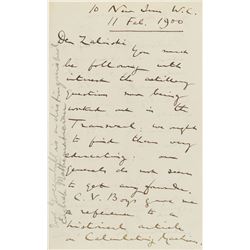 10 New Inn W.C.
11 Feb. 1900
Dear Zabriski You must
be following with
interest the artillery
question now being
worked out in the
Transvaal; we ought
to find them very
interesting; our
generals do not seem
to get any further.
C. V. Boys gave me
a reference to a
historical article
on Calculating Machines